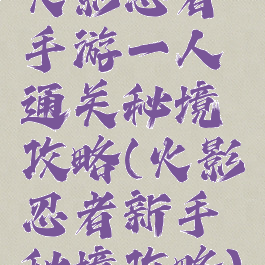 火影忍者
手游一人
通关秘境
攻略(火影
忍者新手
秘境攻略)